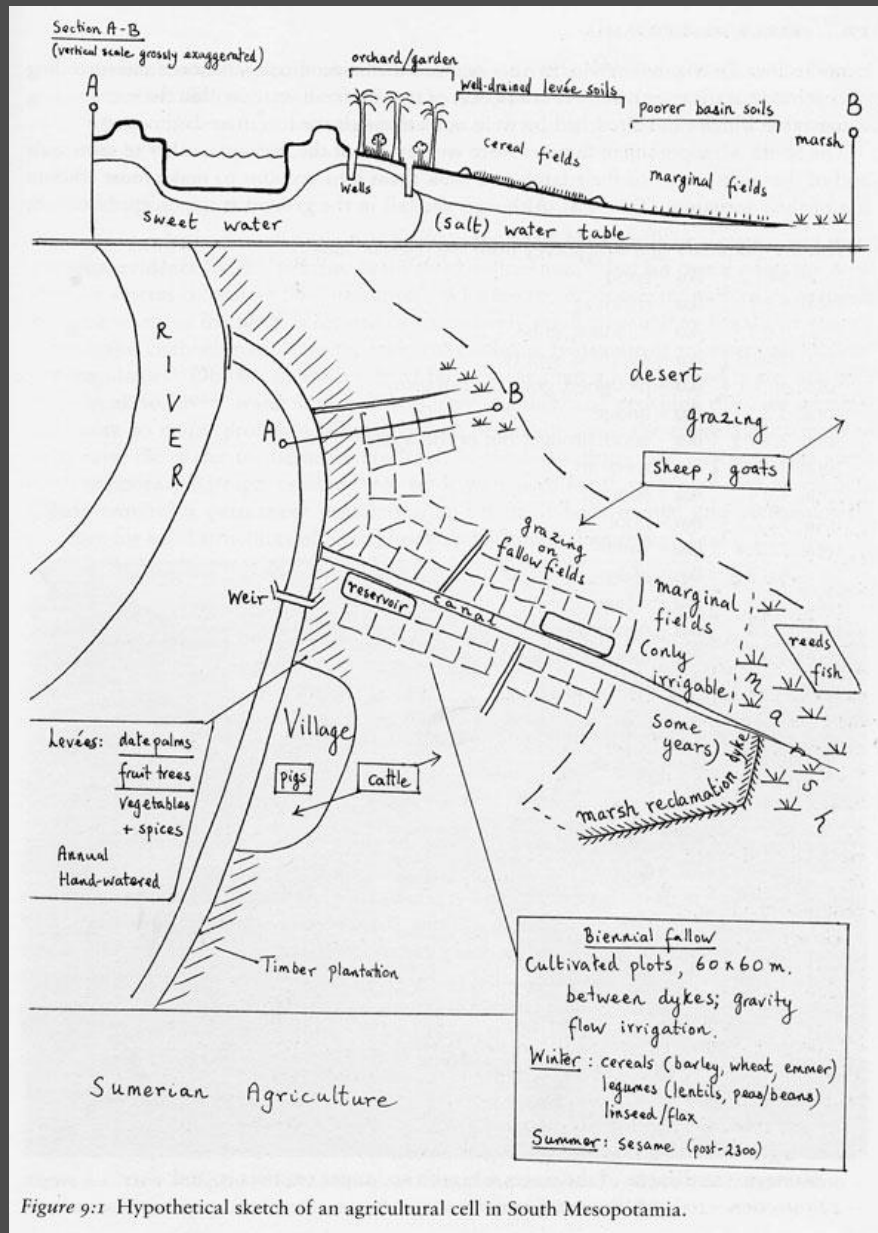 Section A-B
(vertical scale grossly exaggerated)
A
orchard/garden
well-drained levée soils
poorer basin soils
B
marsh
Cereal fields
marginal fields
wells
sweet water
(Salt) water table
RIVER
desert
grazing
sheep, goats
A
B
grazing
on
fallow fields
Weir
reservoir
canal
marginal
fields
(only
irrigable
some
years)
reeds
fish
marsh
marsh reclamation dyke
Village
pigs
cattle
Levées: date palms
fruit trees
vegetables
+ spices
Annual
Hand-watered
Timber plantation
Biennial fallow
Cultivated plots, 60 x 60 m.
between dykes; gravity
flow irrigation.
Winter: cereals (barley, wheat, emmer)
legumes (lentils, peas/beans)
linseed/flax
Summer: sesame (post-2300)
Sumerian Agriculture
Figure 9:1 Hypothetical sketch of an agricultural cell in South Mesopotamia.